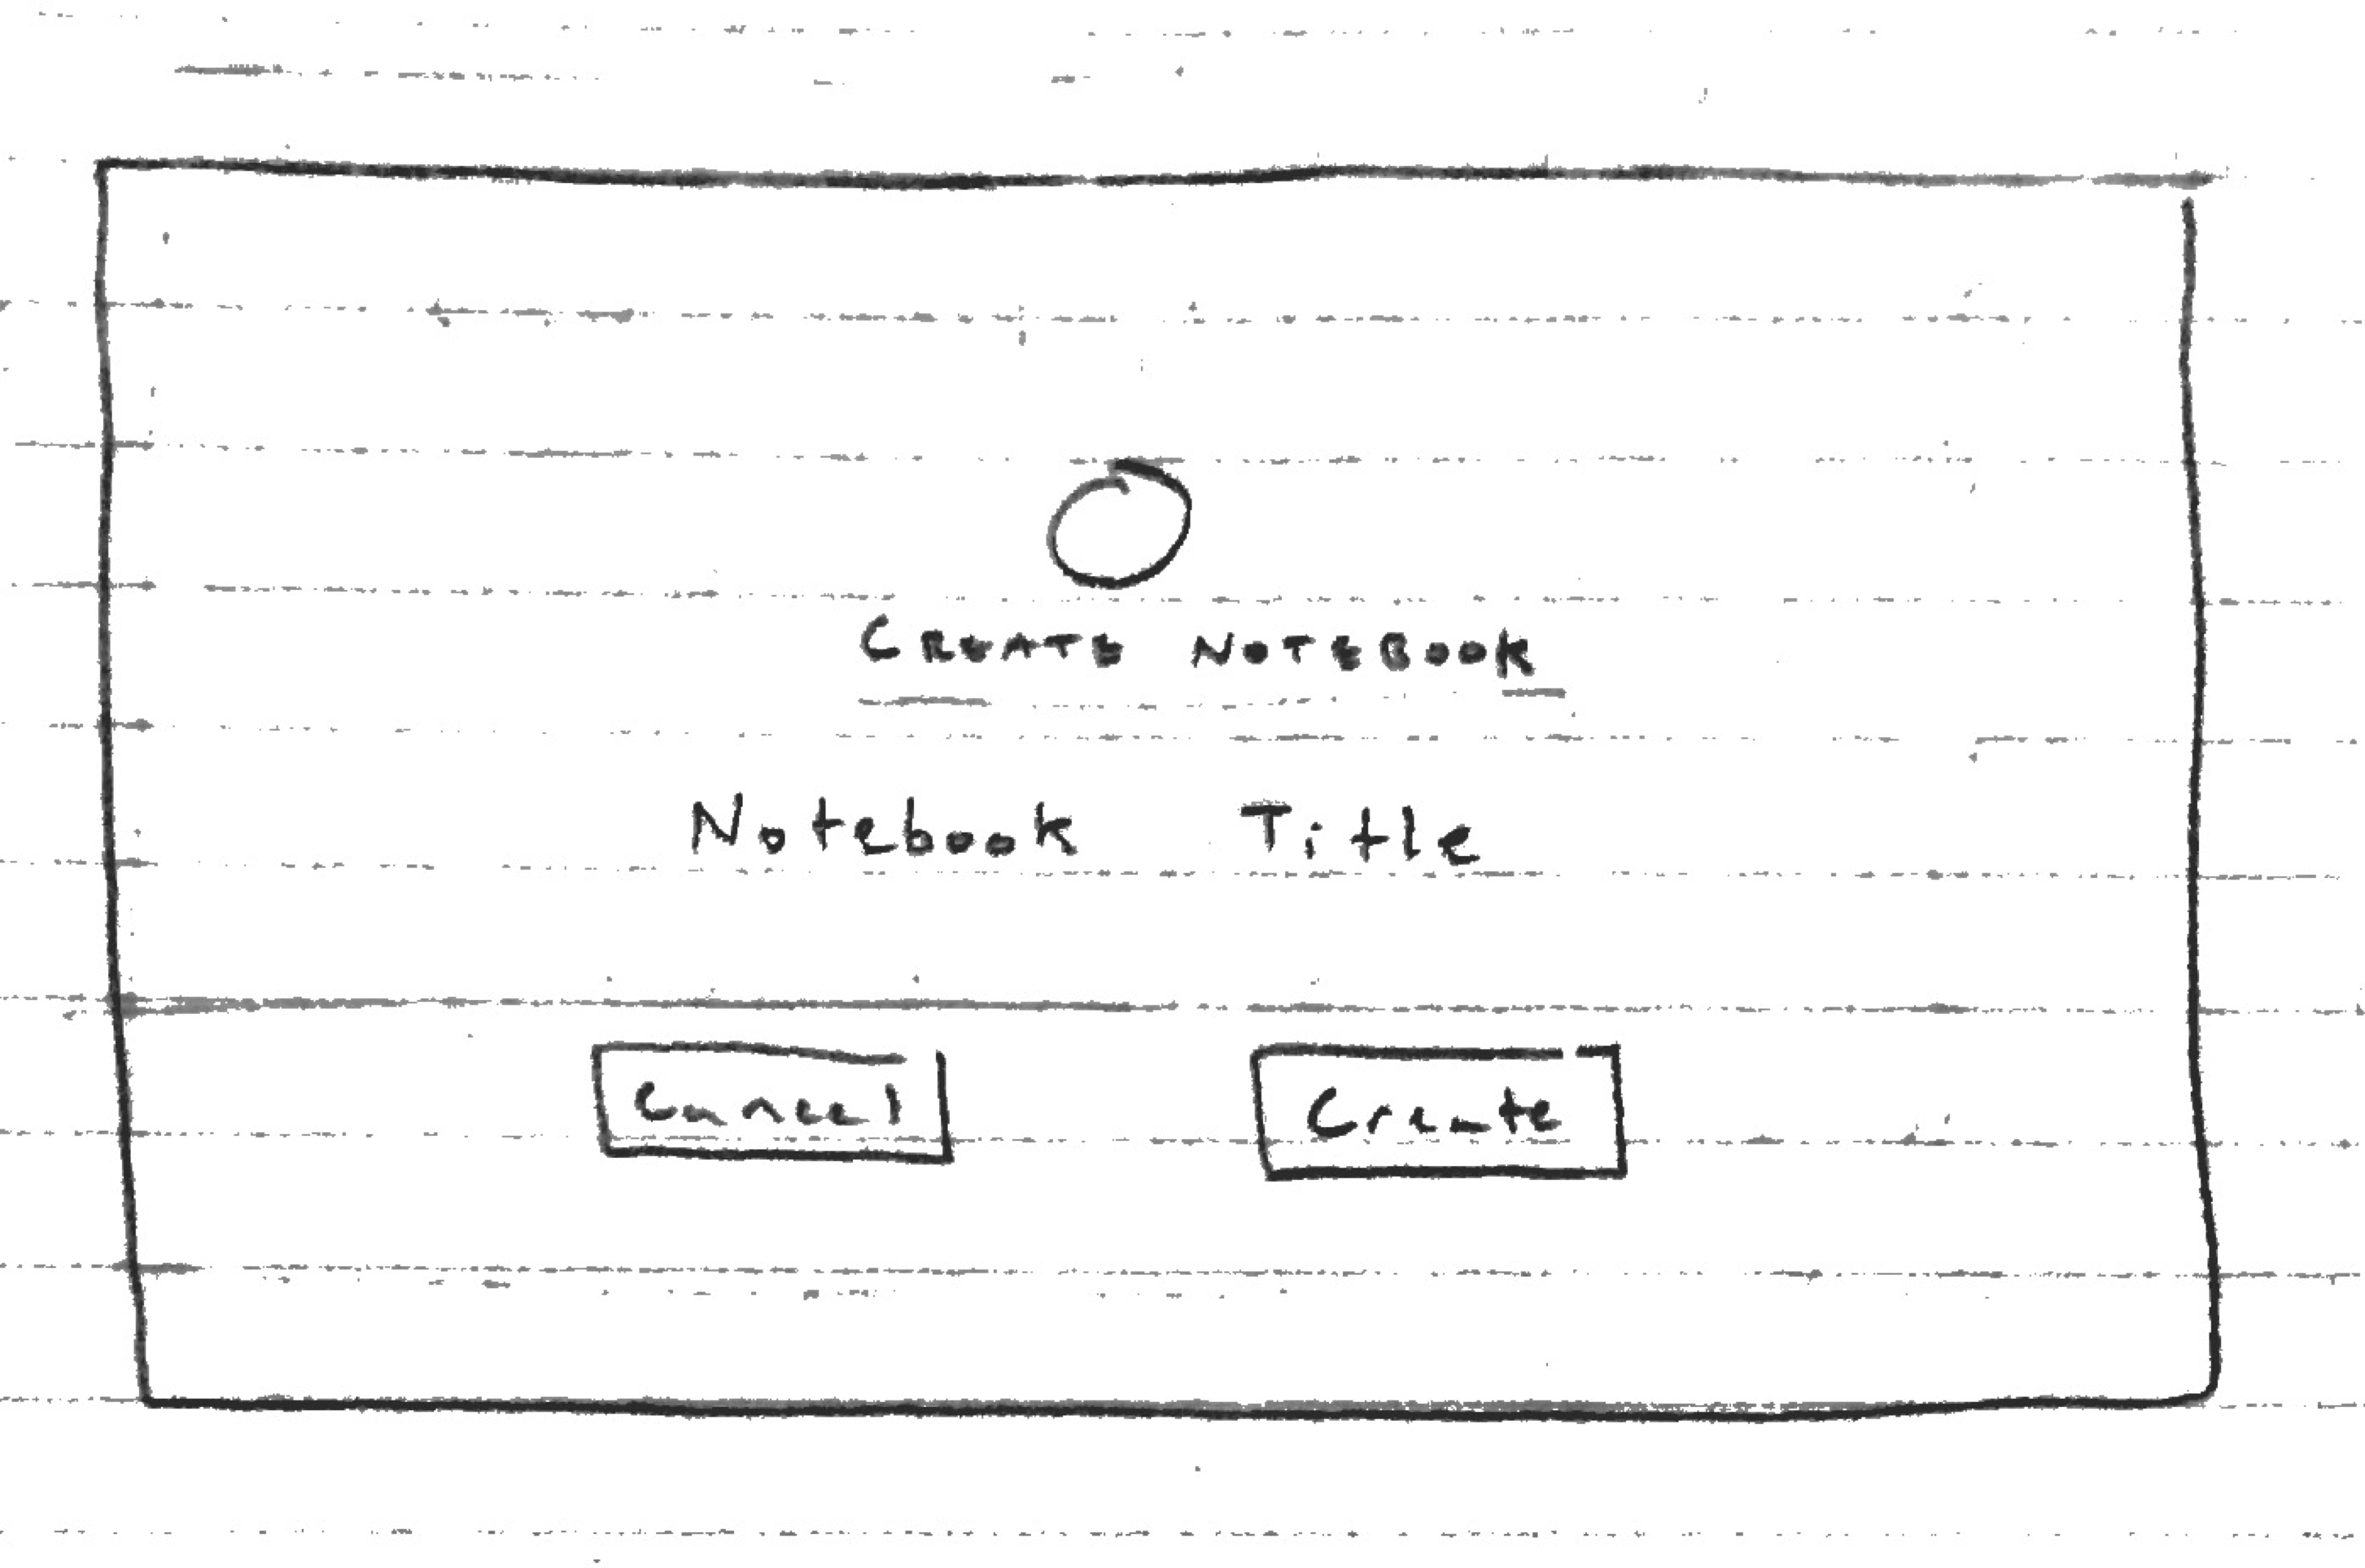 CREATE NOTEBOOK
Notebook Title
Cancel Create